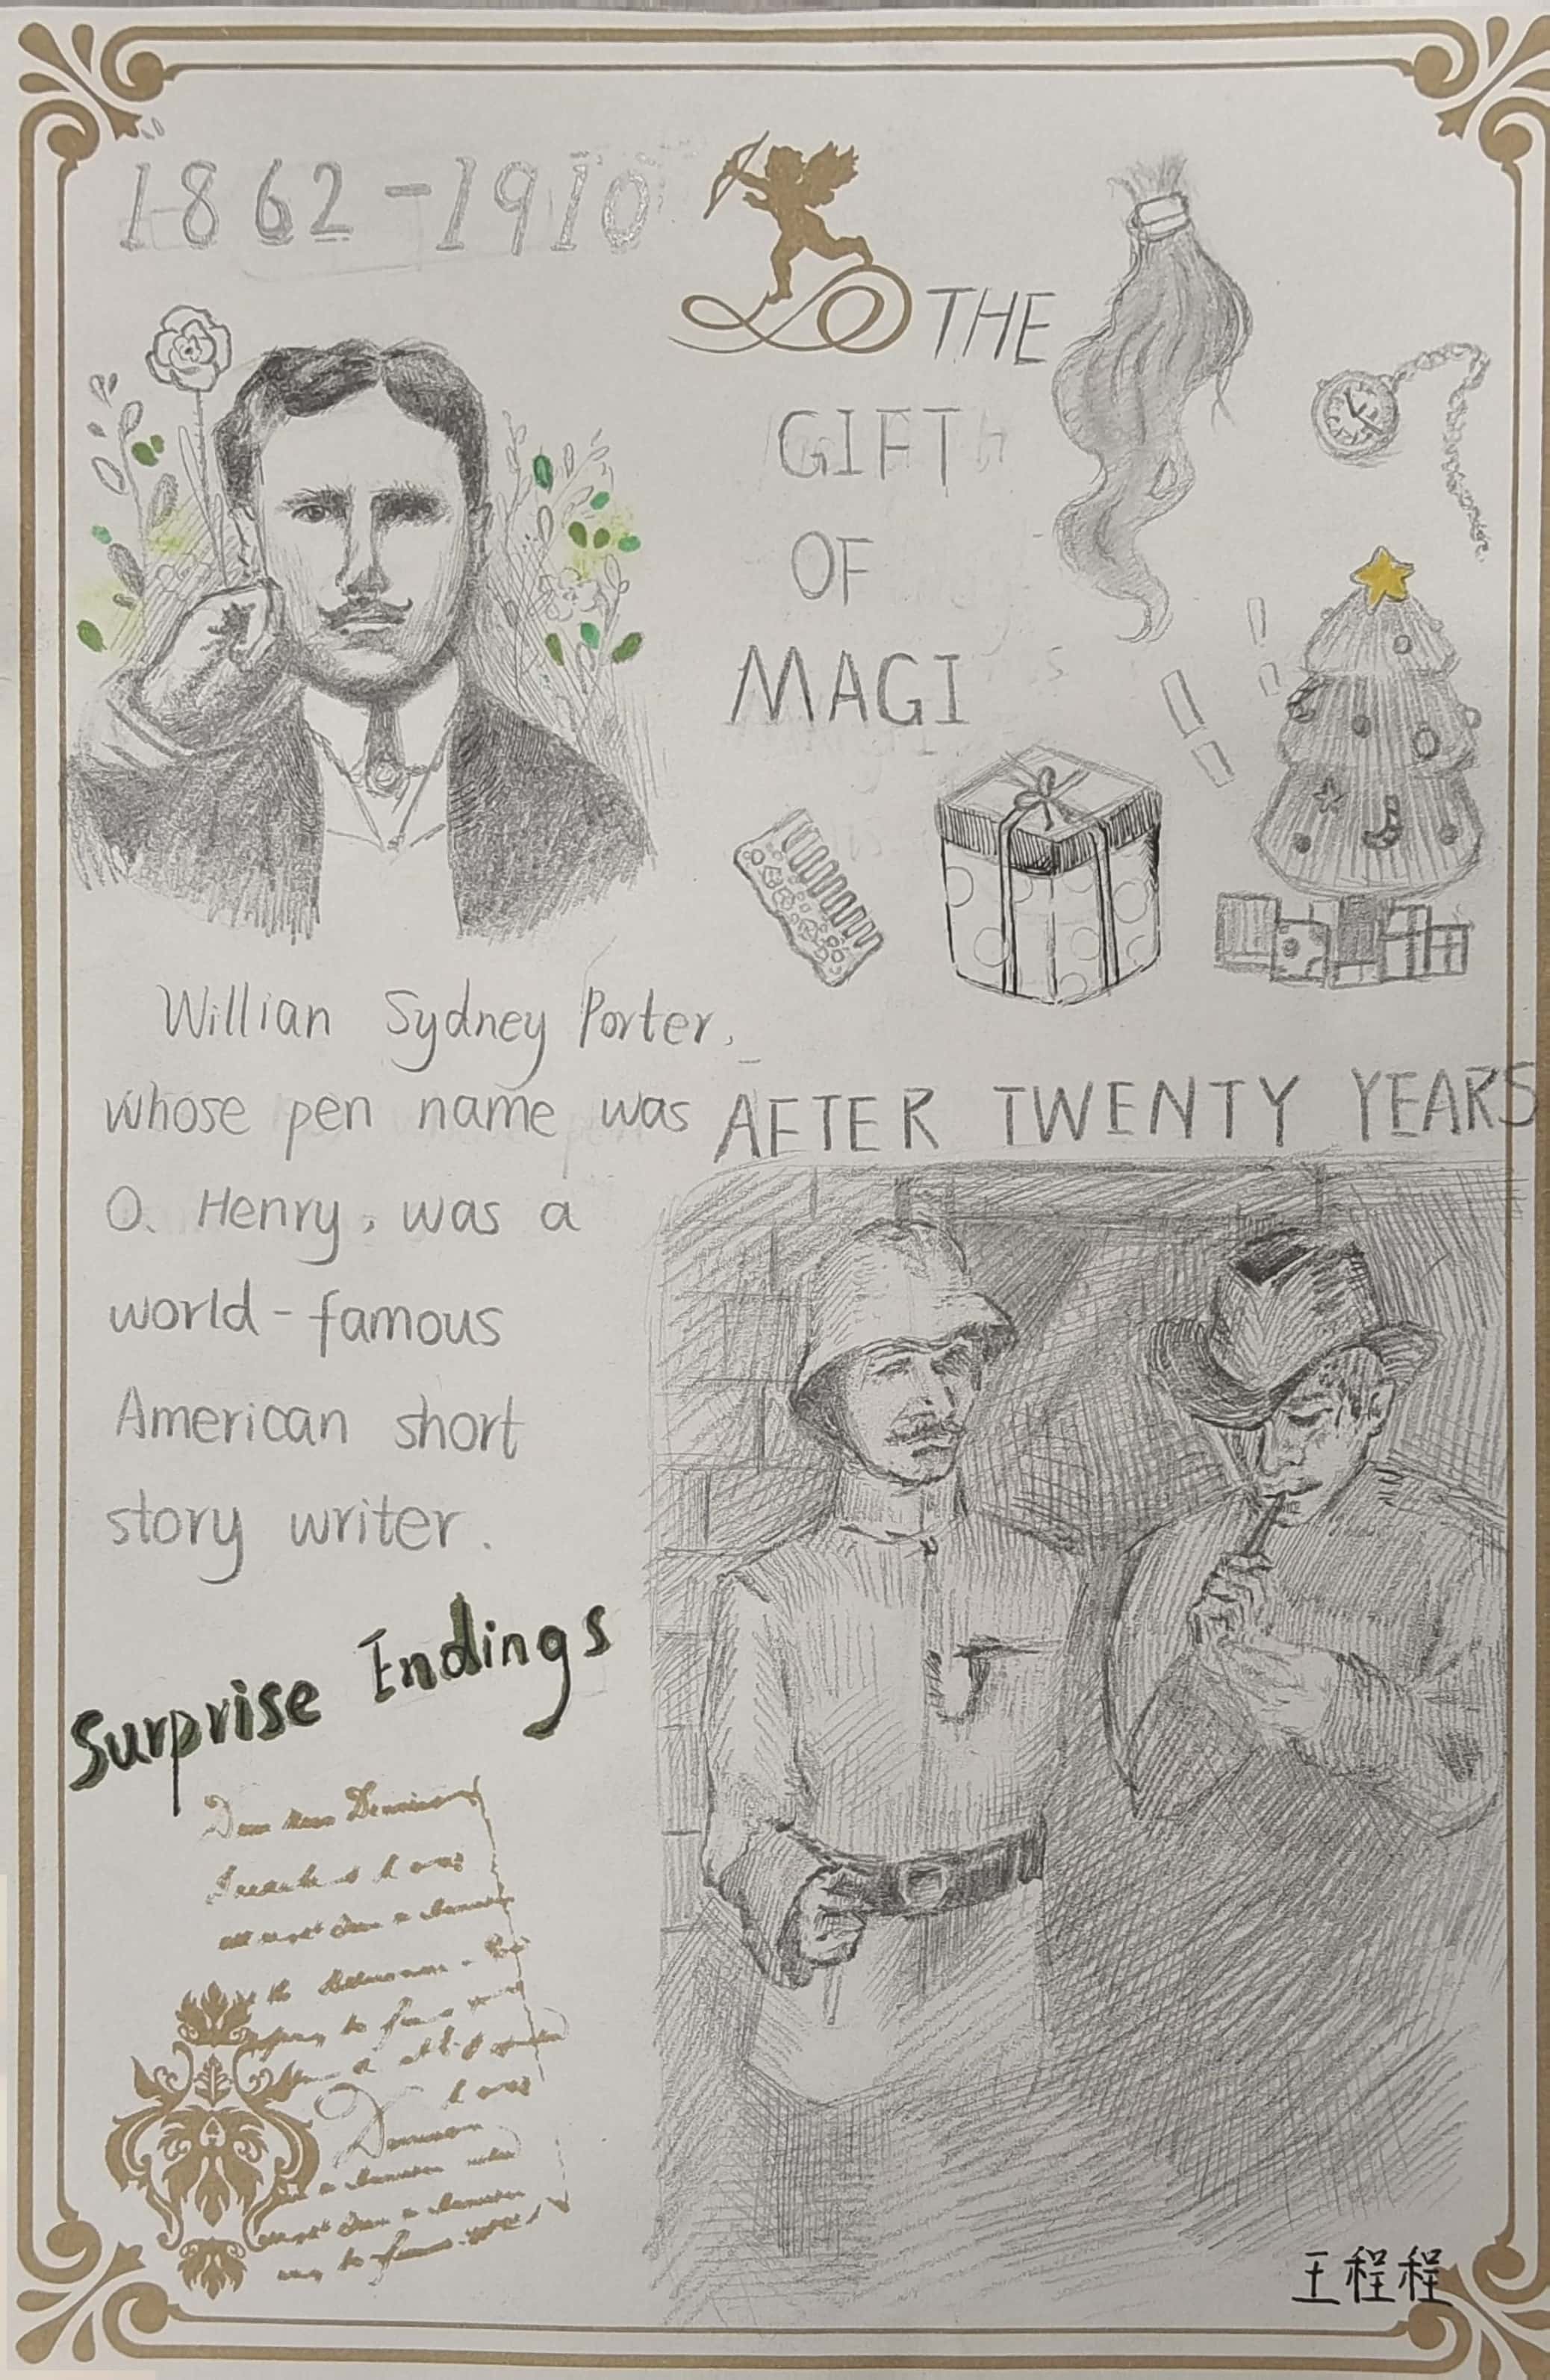 1862-1910
THE
GIFT
OF
MAGI
Willian Sydney Porter,
whose pen name was
O. Henry, was a
world-famous
American short
story writer.
AFTER TWENTY YEARS
Surprise Endings
王程程